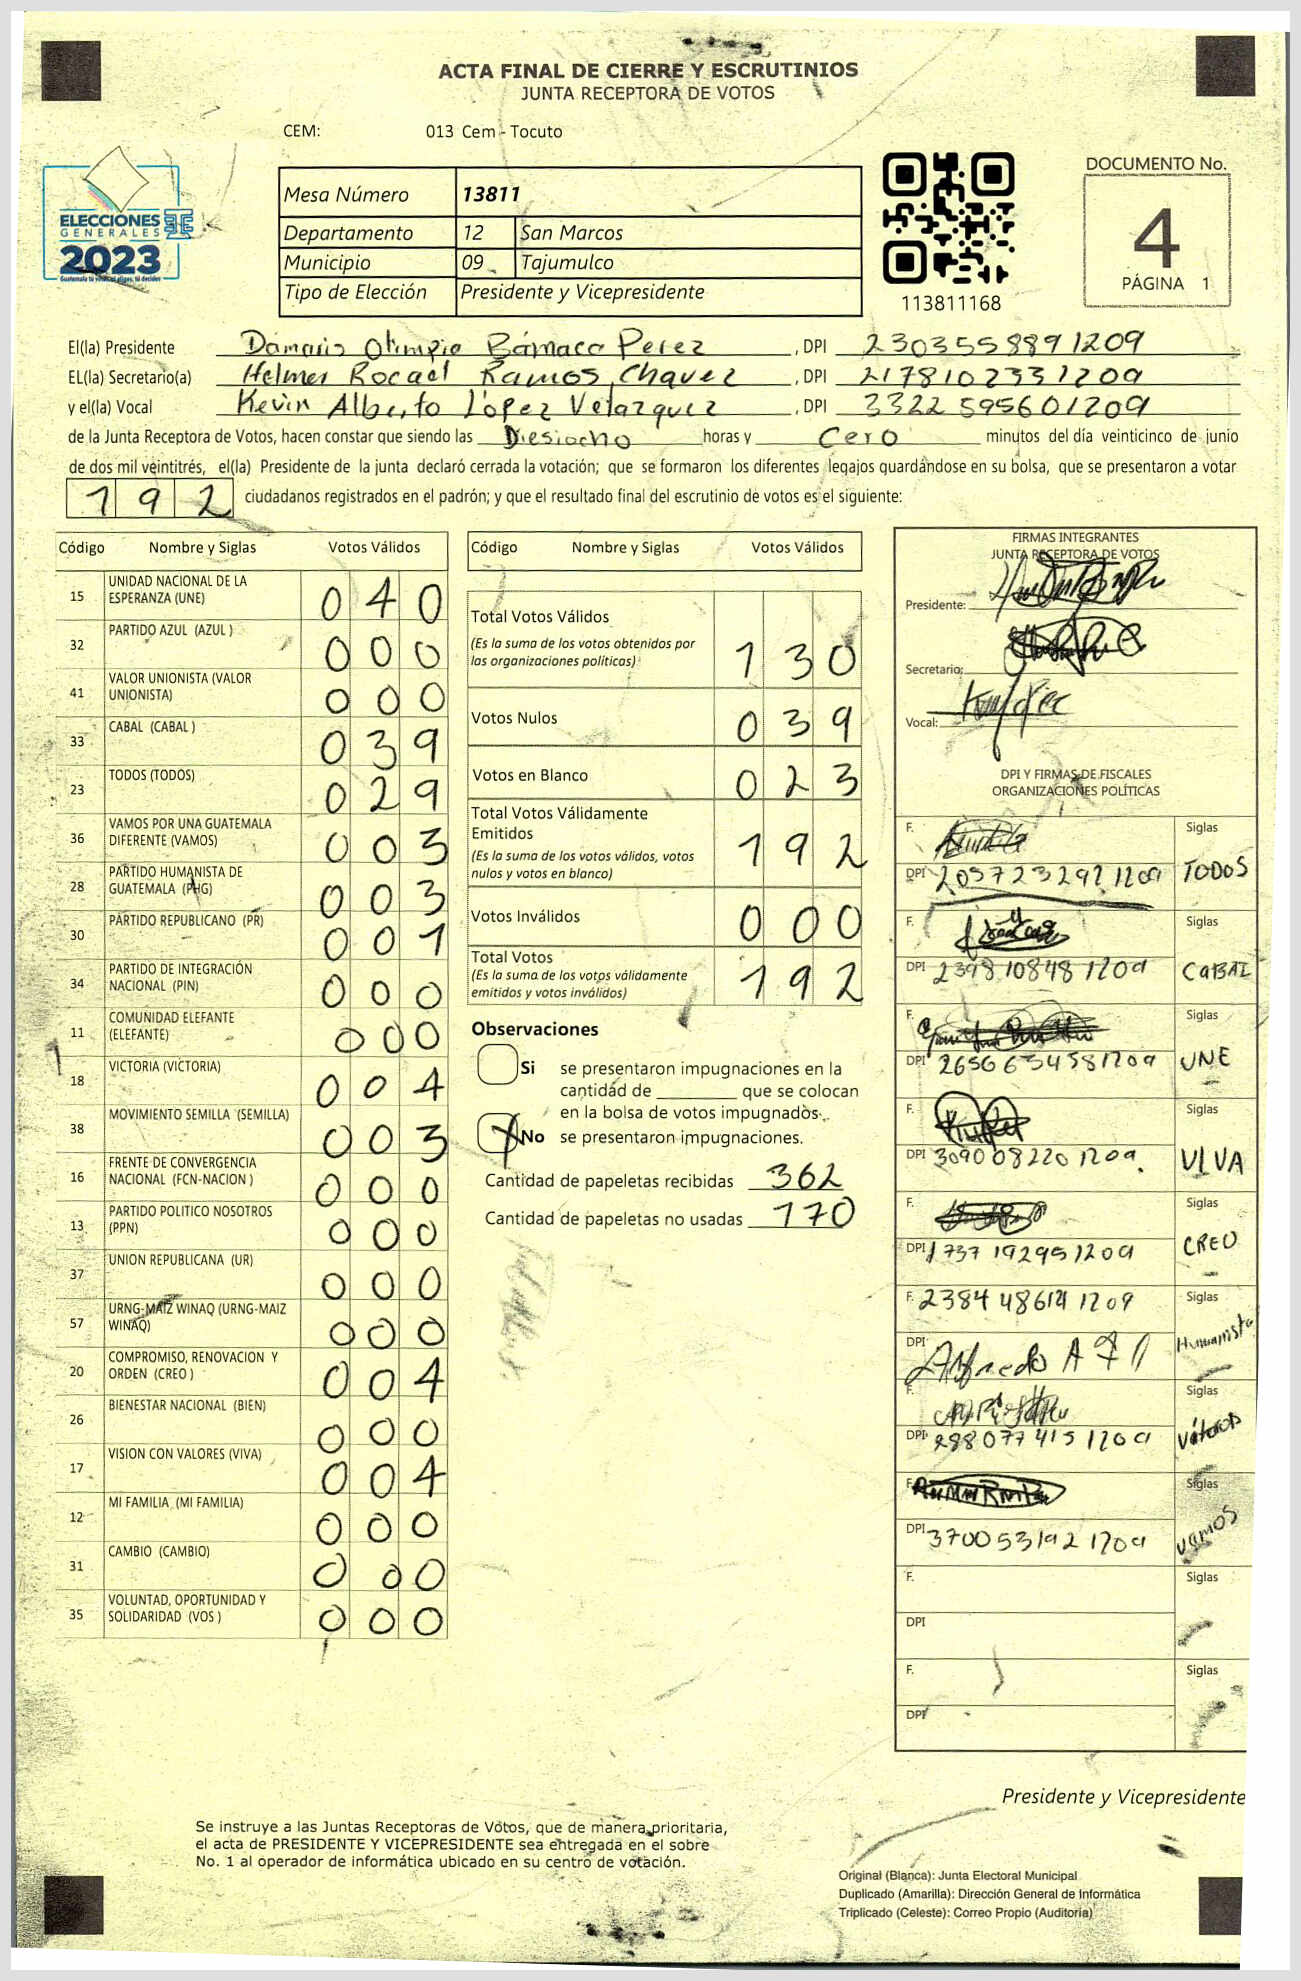 ACTA FINAL DE CIERRE Y ESCRUTINIOS
JUNTA RECEPTORA DE VOTOS
CEM: 013 Cem - Tocuto
ELECCIONES
GENERALES
2023
Guatemala tú vives, tú eliges, tú decides
Mesa Número 13811
Departamento 12 San Marcos
Municipio 09 Tajumulco
Tipo de Elección Presidente y Vicepresidente
113811168
DOCUMENTO No.
4
PÁGINA 1
El(la) Presidente Damaris Olimpia Bámaca Perez, DPI 2303558891209
EL(la) Secretario(a) Helmer Rocael Ramos Chavez, DPI 2178102331209
y el(la) Vocal Kevin Alberto López Velazquez, DPI 3322595601209
de la Junta Receptora de Votos, hacen constar que siendo las Diesiocho horas y Cero minutos del día veinticinco de junio
de dos mil veintitrés, el(la) Presidente de la junta declaró cerrada la votación; que se formaron los diferentes legajos guardándose en su bolsa, que se presentaron a votar
192 ciudadanos registrados en el padrón; y que el resultado final del escrutinio de votos es el siguiente:
Código Nombre y Siglas Votos Válidos
15 UNIDAD NACIONAL DE LA ESPERANZA (UNE) 040
32 PARTIDO AZUL (AZUL ) 000
41 VALOR UNIONISTA (VALOR UNIONISTA) 000
33 CABAL (CABAL ) 039
23 TODOS (TODOS) 029
36 VAMOS POR UNA GUATEMALA DIFERENTE (VAMOS) 003
28 PARTIDO HUMANISTA DE GUATEMALA (PHG) 003
30 PARTIDO REPUBLICANO (PR) 001
34 PARTIDO DE INTEGRACIÓN NACIONAL (PIN) 000
11 COMUNIDAD ELEFANTE (ELEFANTE) 000
18 VICTORIA (VICTORIA) 004
38 MOVIMIENTO SEMILLA (SEMILLA) 003
16 FRENTE DE CONVERGENCIA NACIONAL (FCN-NACION ) 000
13 PARTIDO POLITICO NOSOTROS (PPN) 000
37 UNION REPUBLICANA (UR) 000
57 URNG-MAIZ WINAQ (URNG-MAIZ WINAQ) 000
20 COMPROMISO, RENOVACION Y ORDEN (CREO ) 004
26 BIENESTAR NACIONAL (BIEN) 000
17 VISION CON VALORES (VIVA) 004
12 MI FAMILIA (MI FAMILIA) 000
31 CAMBIO (CAMBIO) 000
35 VOLUNTAD, OPORTUNIDAD Y SOLIDARIDAD (VOS ) 000
Código Nombre y Siglas Votos Válidos
Total Votos Válidos
(Es la suma de los votos obtenidos por las organizaciones políticas) 130
Votos Nulos 039
Votos en Blanco 023
Total Votos Válidamente Emitidos
(Es la suma de los votos válidos, votos nulos y votos en blanco) 192
Votos Inválidos 000
Total Votos
(Es la suma de los votos válidamente emitidos y votos inválidos) 192
Observaciones
Si se presentaron impugnaciones en la
cantidad de ________ que se colocan
en la bolsa de votos impugnados.
X No se presentaron impugnaciones.
Cantidad de papeletas recibidas 362
Cantidad de papeletas no usadas 170
FIRMAS INTEGRANTES
JUNTA RECEPTORA DE VOTOS
Presidente:
Secretario:
Vocal:
DPI Y FIRMAS DE FISCALES
ORGANIZACIONES POLÍTICAS
F. Siglas
DPI 2057232921209 TODOS
F. Siglas
DPI 2398108481209 CABAL
F. Siglas
DPI 2656634581209 UNE
F. Siglas
DPI 3090082201209 VIVA
F. Siglas
DPI 1737192951209 CREO
F. 2384486121209 Siglas
DPI Alfredo Humanista
F. Siglas
DPI 2880774151209
F. Siglas
DPI 3700531921209 vamos
F. Siglas
DPI
F. Siglas
DPI
Presidente y Vicepresidente
Se instruye a las Juntas Receptoras de Votos, que de manera prioritaria,
el acta de PRESIDENTE Y VICEPRESIDENTE sea entregada en el sobre
No. 1 al operador de informática ubicado en su centro de votación.
Original (Blanca): Junta Electoral Municipal
Duplicado (Amarilla): Dirección General de Informática
Triplicado (Celeste): Correo Propio (Auditoria)